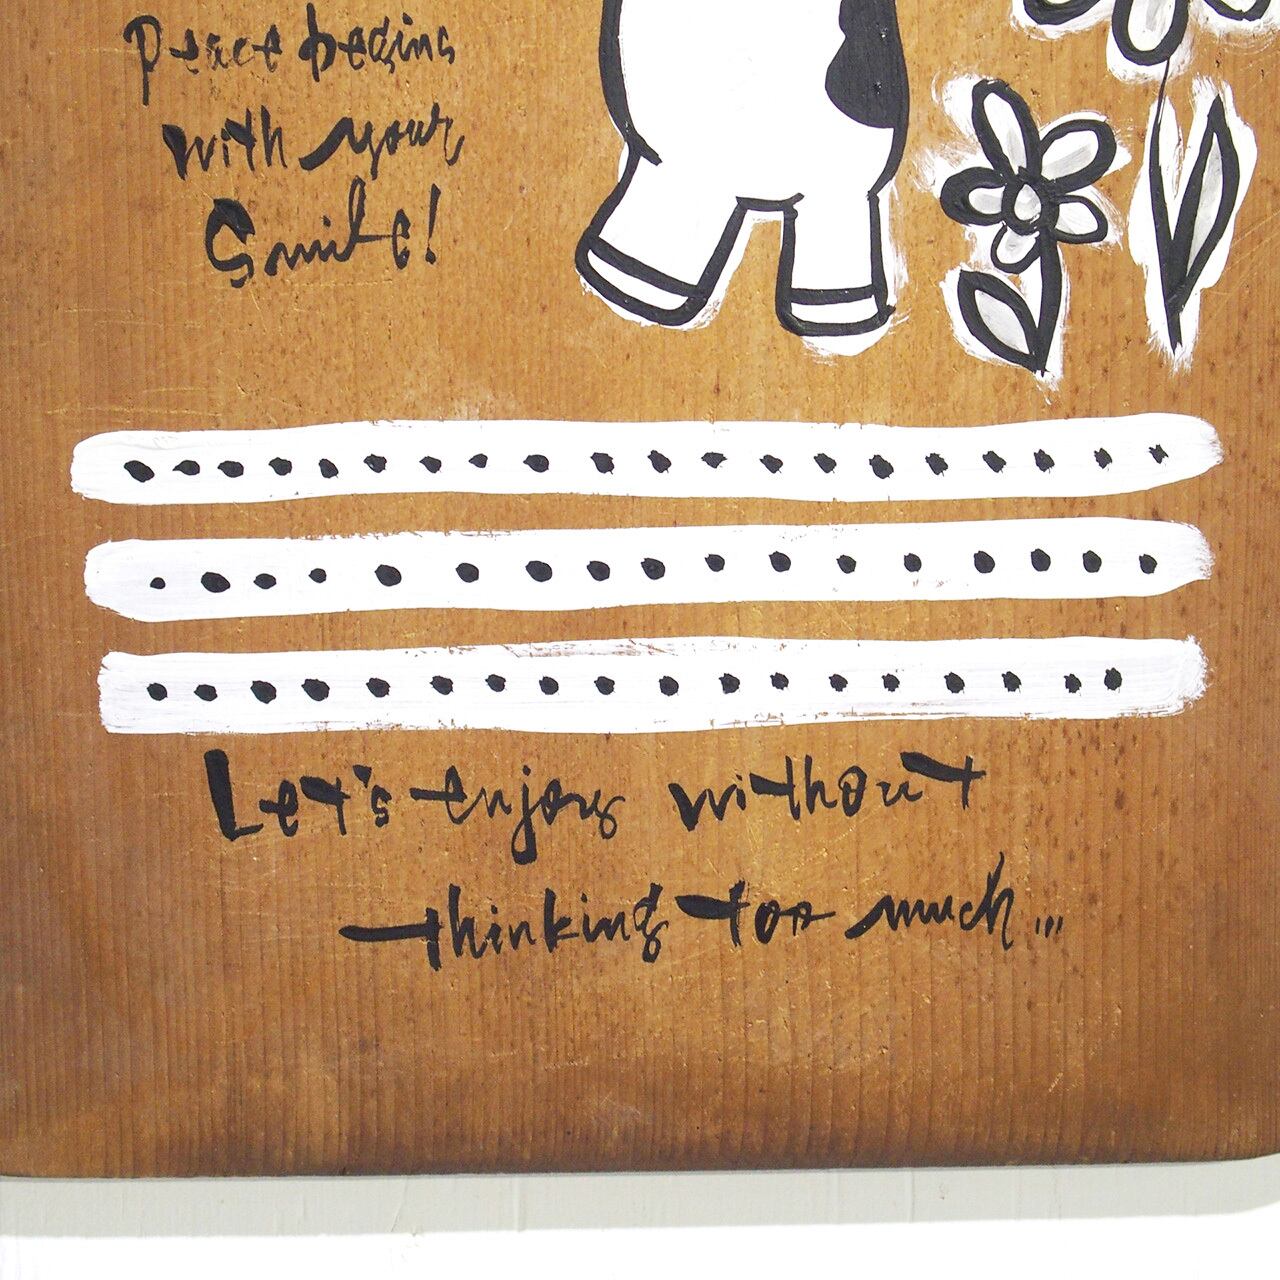 Peace begins
with your
Smile!
Let's enjoy without
thinking too much...